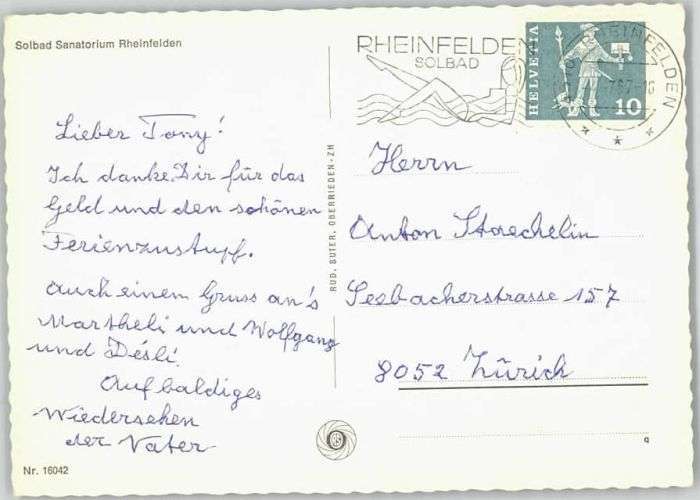 Solbad Sanatorium Rheinfelden
Lieber Tony!
Ich danke Dir für das
Geld und den schönen
Ferienzustupf.
Auch einem Gruss an's
Martheli und Wolfgang
und Désli.
Auf baldiges
Wiedersehen
der Vater
Nr. 16042
RUD. SUTER, OBERRIEDEN-ZH
RHEINFELDEN
SOLBAD
HELVETIA
10
RHEINFELDEN
Herrn
Anton Staechelin
Seebacherstrasse 157
8052 Zürich
q